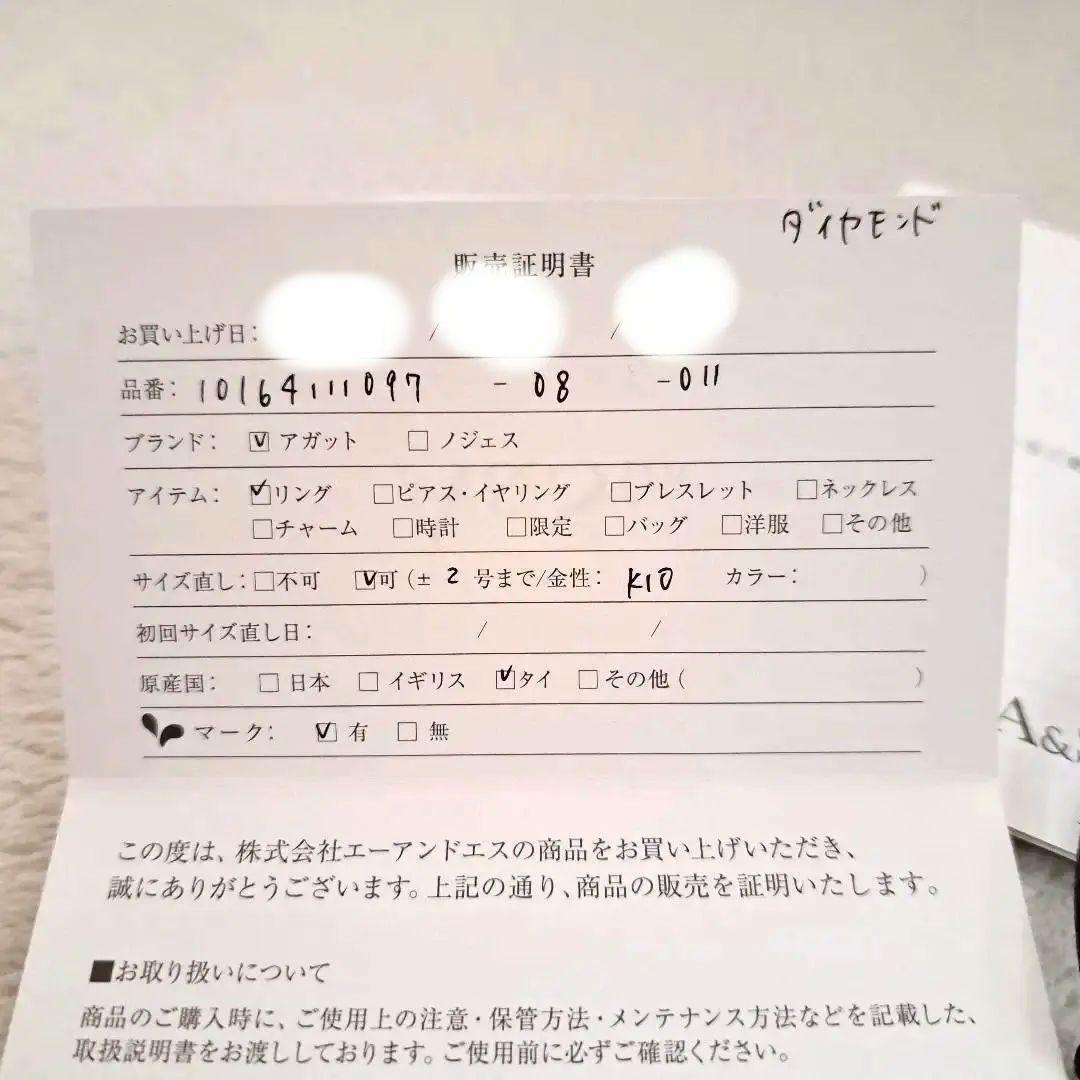 ダイヤモンド
販売証明書
お買い上げ日: / /
品番: 10164111097 - 08 -011
ブランド: ☑ アガット □ ノジェス
アイテム: ☑リング □ピアス・イヤリング □ブレスレット □ネックレス
□チャーム □時計 □限定 □バッグ □洋服 □その他
サイズ直し: □不可 ☑可 (± 2 号まで/金性: K10 カラー: )
初回サイズ直し日: / /
原産国: □ 日本 □ イギリス ☑タイ □その他 ( )
マーク: ☑ 有 □ 無
A&
この度は、株式会社エーアンドエスの商品をお買い上げいただき、
誠にありがとうございます。上記の通り、商品の販売を証明いたします。
■お取り扱いについて
商品のご購入時に、ご使用上の注意・保管方法・メンテナンス方法などを記載した、
取扱説明書をお渡ししております。ご使用前に必ずご確認ください。